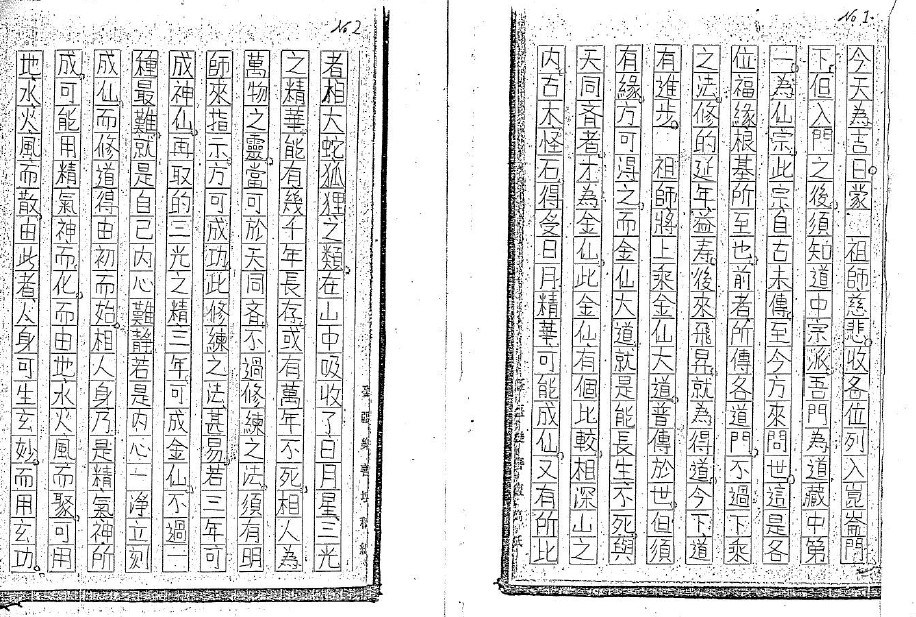 No 1.
今天為吉日。蒙　祖師慈悲。收各位列入崑崙門
下。但入門之後。須知道中宗派。吾門為道藏中第
一。為仙宗。此宗自古未傳。至今方來問世。這是各
位福緣根基所至也。前者所傳各道門。不過下乘
之法。修的延年益壽。後來飛昇。就為得道。今下道
有進步。　祖師將上乘金仙大道。普傳於世。但須
有緣。方可得之。而金仙大道。就是能長生不死。與
天同斉者。才為金仙。此金仙有個比較。相深山之
内。古木怪石得受日月精華。可能成仙。又有所比
No 2
者。相大蛇狐狸之類。在山中吸收了日月星三光
之精華。能有幾千年長存。或有萬年不死。相人為
萬物之靈。當可於天同斉。不過修練之法。須有明
師來指示。方可成功。此修練之法甚易。若三年可
成神仙。再取的三光之精。三年可成金仙。不過一
種最難。就是自己内心難靜。若是内心一净。立刻
成仙。而修道得由初而始。相人身乃是精氣神所
成。可能用精氣神而化。而由地水火風而聚。可用
地水火風而散。由此者。人身可生玄妙。而用玄功。